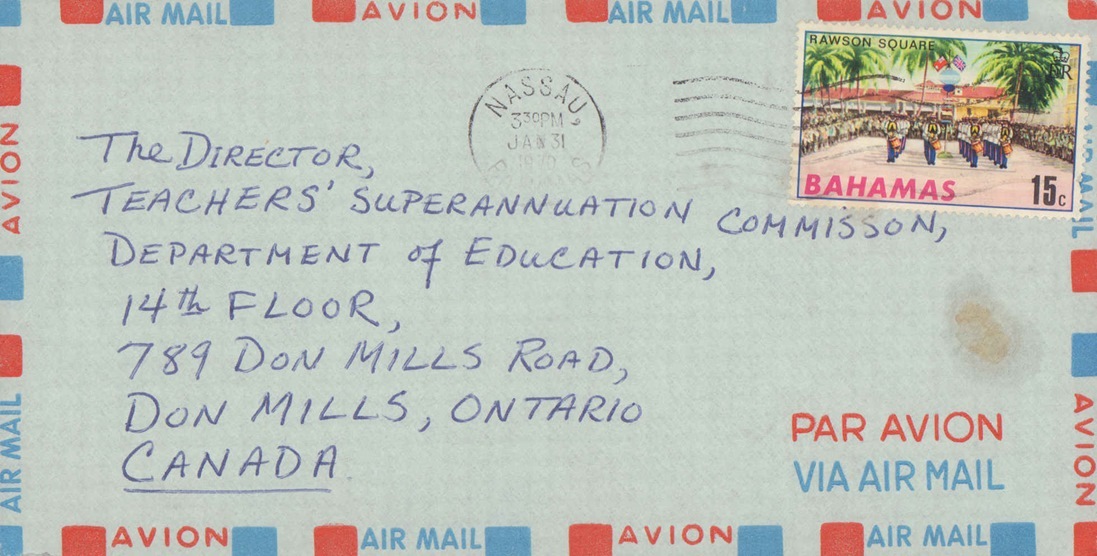 AIR MAIL AVION AIR MAIL AVION
RAWSON SQUARE
BAHAMAS 15c
NASSAU,
3 30PM
JAN 31
The DIRECTOR,
TEACHERS' SUPERANNUATION COMMISSON,
DEPARTMENT of EDUCATION,
14th FLOOR,
789 DON MILLS ROAD,
DON MILLS, ONTARIO
CANADA.
PAR AVION
VIA AIR MAIL
AVION
AIR MAIL
AIR MAIL
AVION
AVION AIR MAIL AVION AIR MAIL